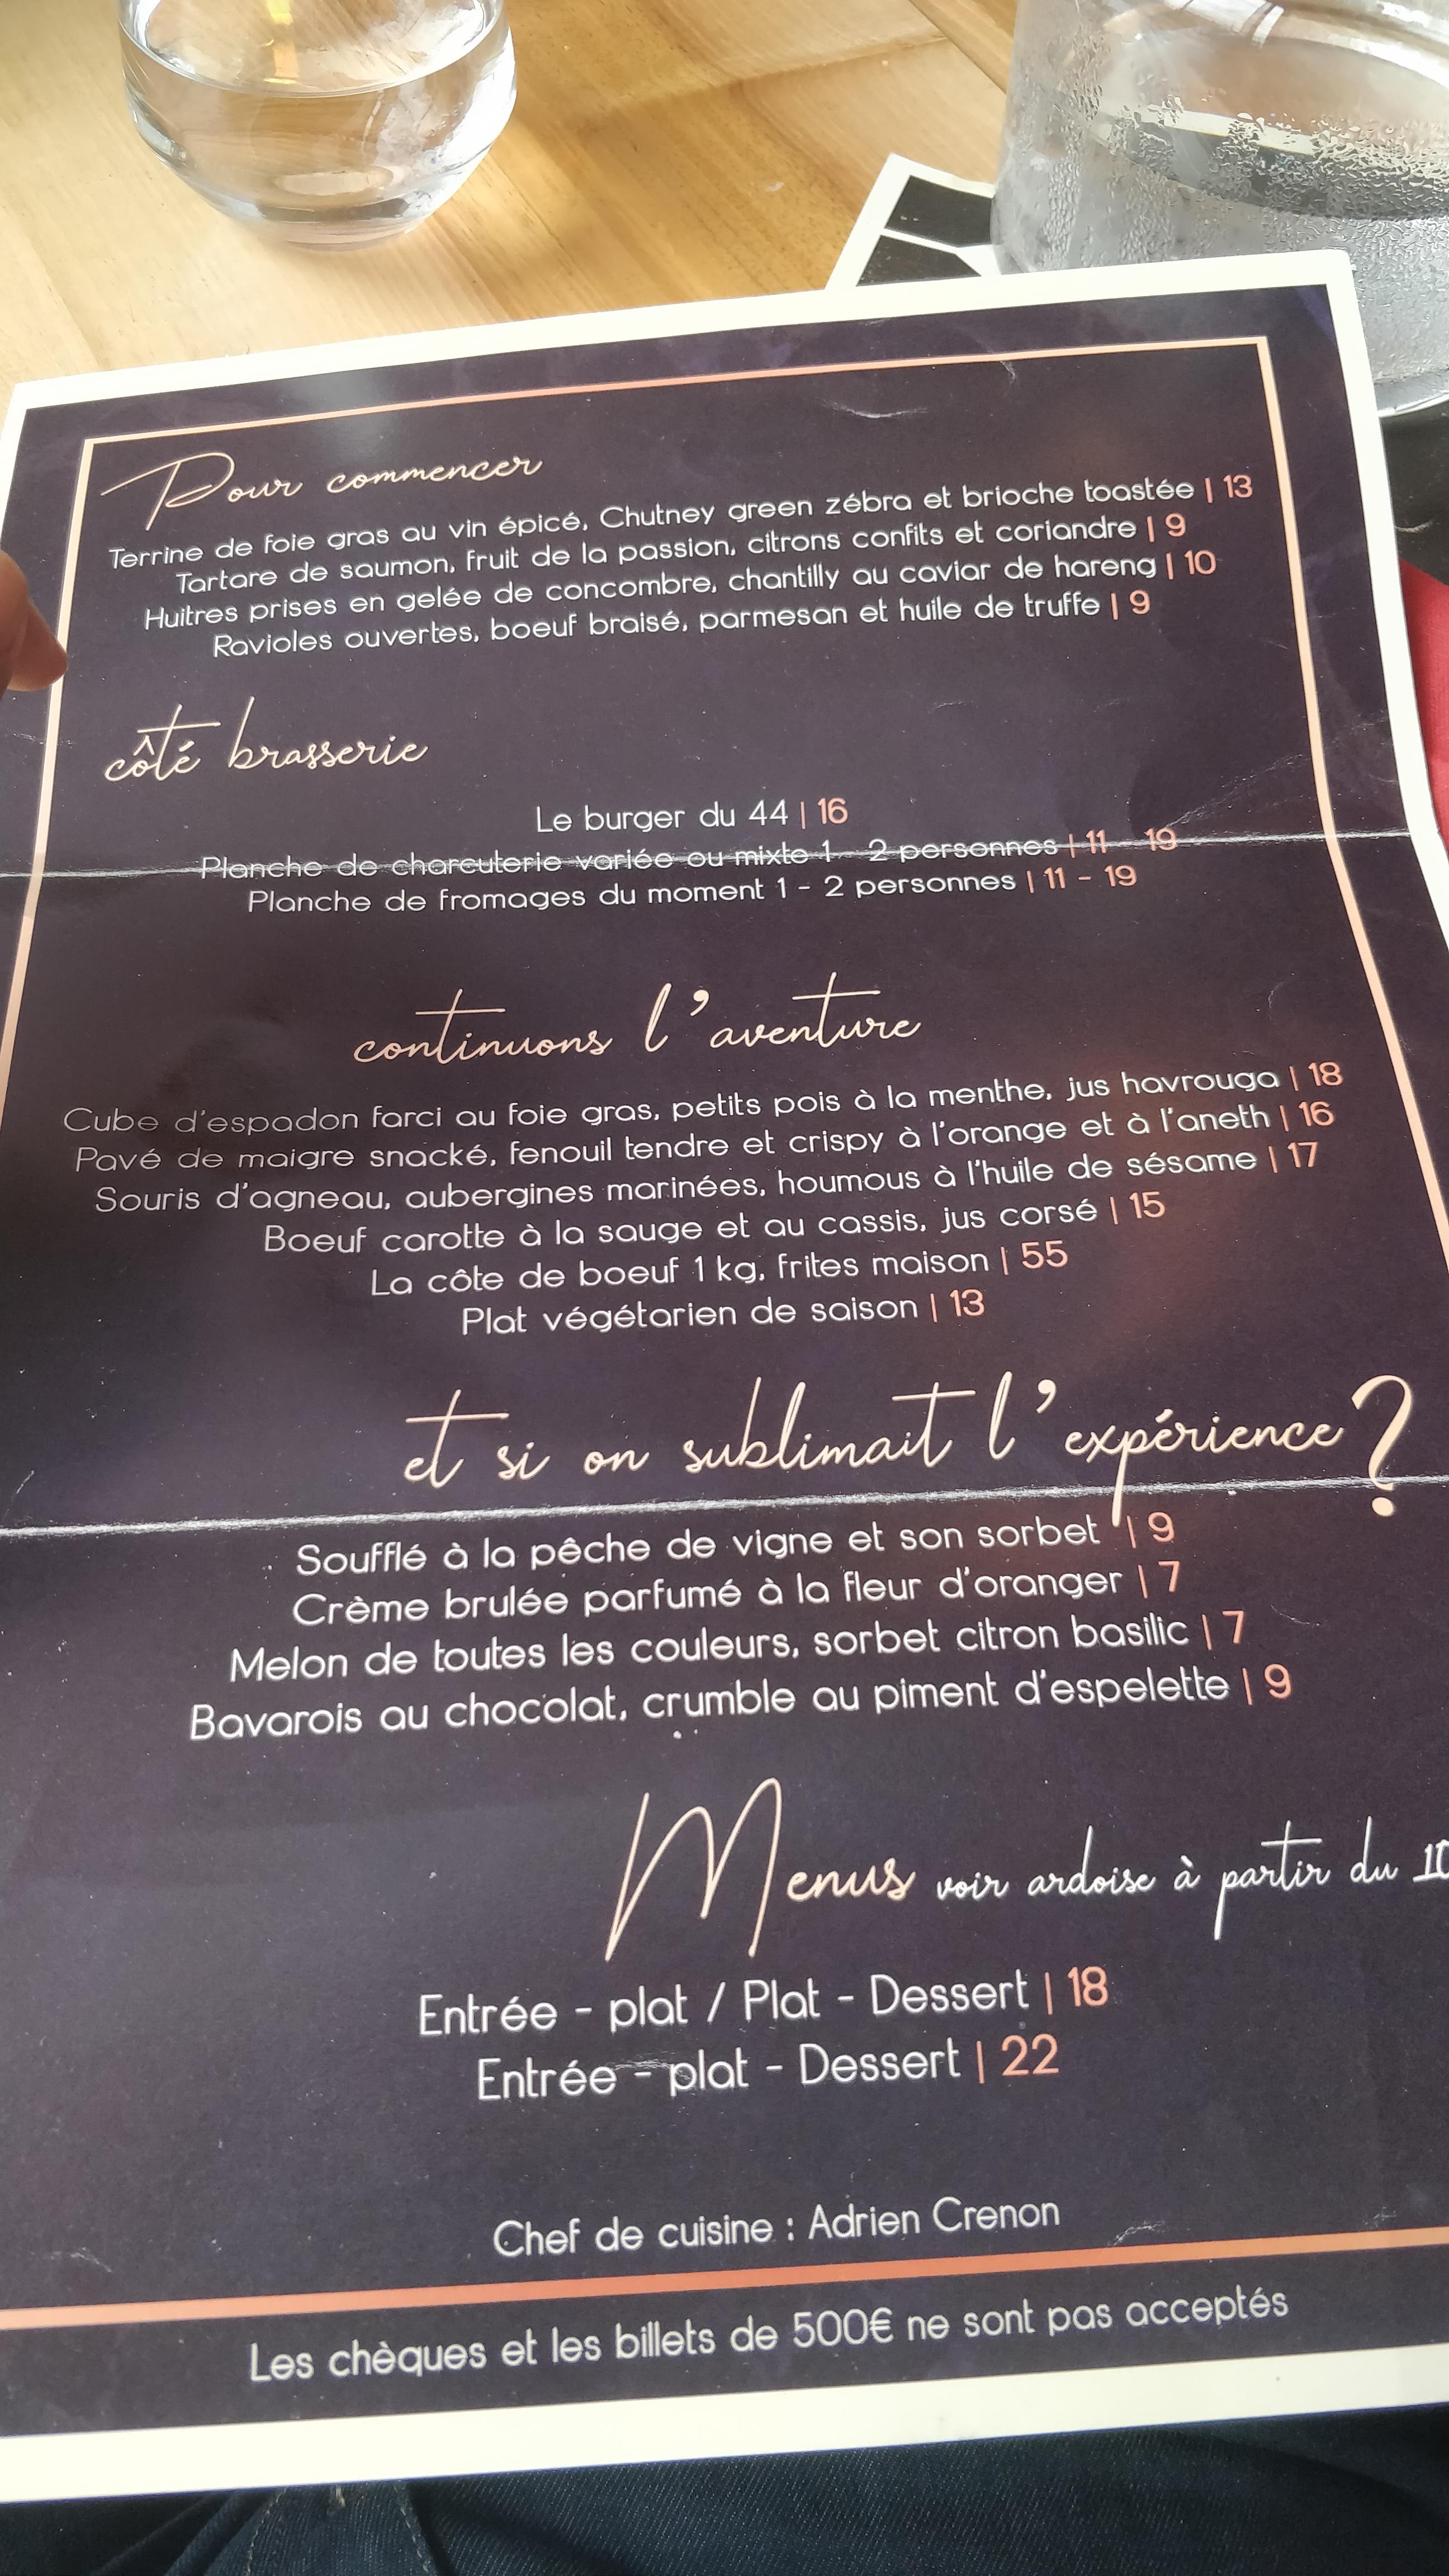 Pour commencer
Terrine de foie gras au vin épicé, Chutney green zébra et brioche toastée | 13
Tartare de saumon, fruit de la passion, citrons confits et coriandre | 9
Huitres prises en gelée de concombre, chantilly au caviar de hareng | 10
Ravioles ouvertes, boeuf braisé, parmesan et huile de truffe | 9
côté brasserie
Le burger du 44 | 16
Planche de charcuterie variée ou mixte 1 - 2 personnes | 11 - 19
Planche de fromages du moment 1 - 2 personnes | 11 - 19
continuons l'aventure
Cube d'espadon farci au foie gras, petits pois à la menthe, jus havrouga | 18
Pavé de maigre snacké, fenouil tendre et crispy à l'orange et à l'aneth | 16
Souris d'agneau, aubergines marinées, houmous à l'huile de sésame | 17
Boeuf carotte à la sauge et au cassis, jus corsé | 15
La côte de boeuf 1 kg, frites maison | 55
Plat végétarien de saison | 13
et si on sublimait l'expérience ?
Soufflé à la pêche de vigne et son sorbet | 9
Crème brulée parfumé à la fleur d'oranger | 7
Melon de toutes les couleurs, sorbet citron basilic | 7
Bavarois au chocolat, crumble au piment d'espelette | 9
Menus voir ardoise à partir du
Entrée - plat / Plat - Dessert | 18
Entrée - plat - Dessert | 22
Chef de cuisine : Adrien Crenon
Les chèques et les billets de 500€ ne sont pas acceptés